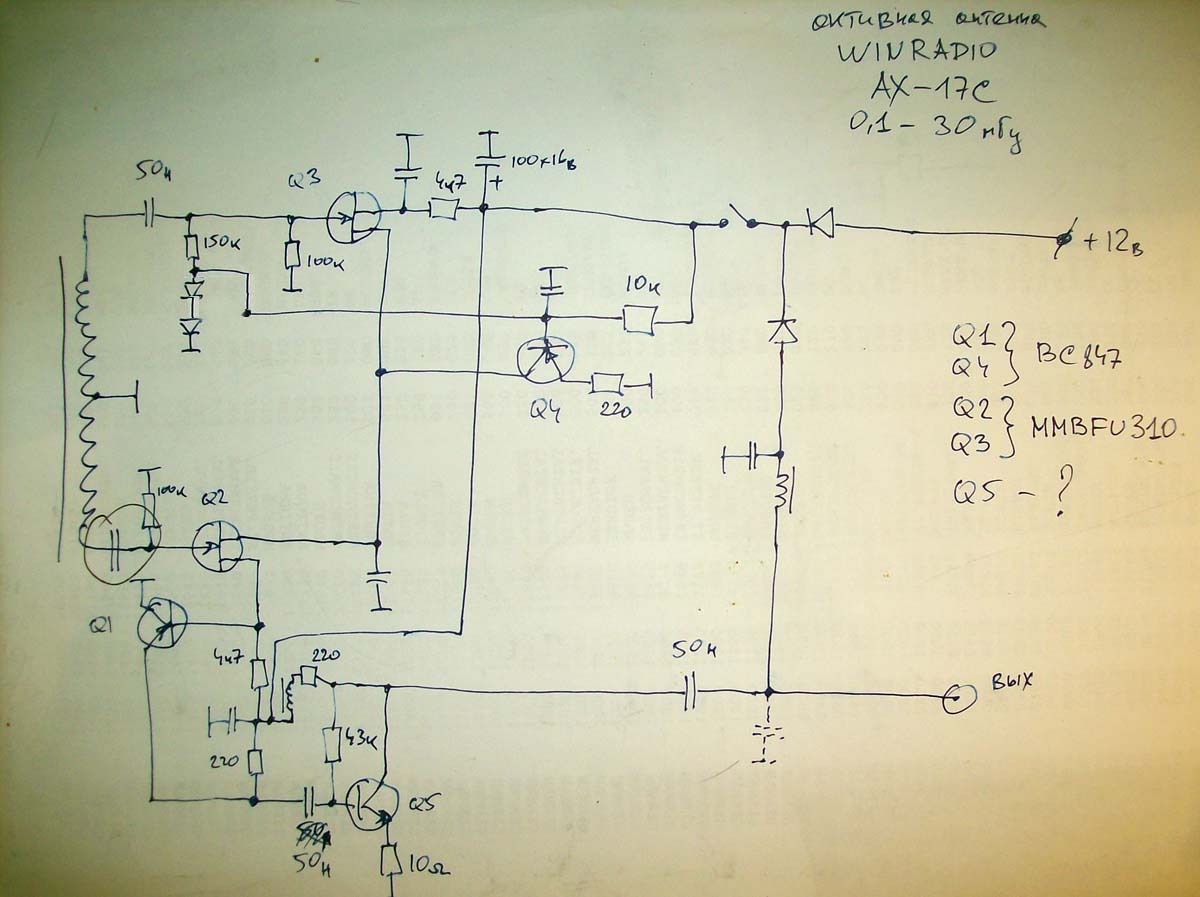 активная антенна
WINRADIO
AX-17C
0,1 - 30 мгц
50н
Q3
4к7
100x16в
+
150к
100к
+12в
10к
Q4
220
Q1 } BC847
Q4
Q2 } MMBFU310
Q3
Q5 - ?
100к
Q2
Q1
4к7
220
50н
Вых
43к
220
Q5
50н
10Ω